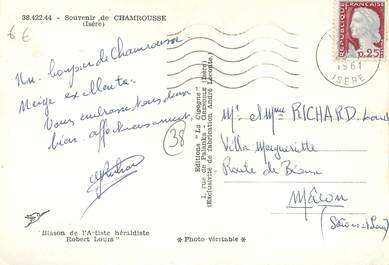 6 €
38.422.44 - Souvenir de CHAMROUSSE
(Isère)
Un bonjour de Chamrousse
Neige excellente.
Vous embrassons tous deux
bien affectueusement
38
"Blason de l'Artiste héraldiste
Robert Louis"
* Photo véritable *
Editions "La Cigogne"
1, rue de Palanka - Grenoble (Isère)
(Exclusivité de fabrication André Leconte)
REPUBLIQUE FRANÇAISE
0,25
1961
ISERE
Mr et Mme RICHARD Louis
Villa Marguerite
Route de
Mâcon
(Saône et Loire)